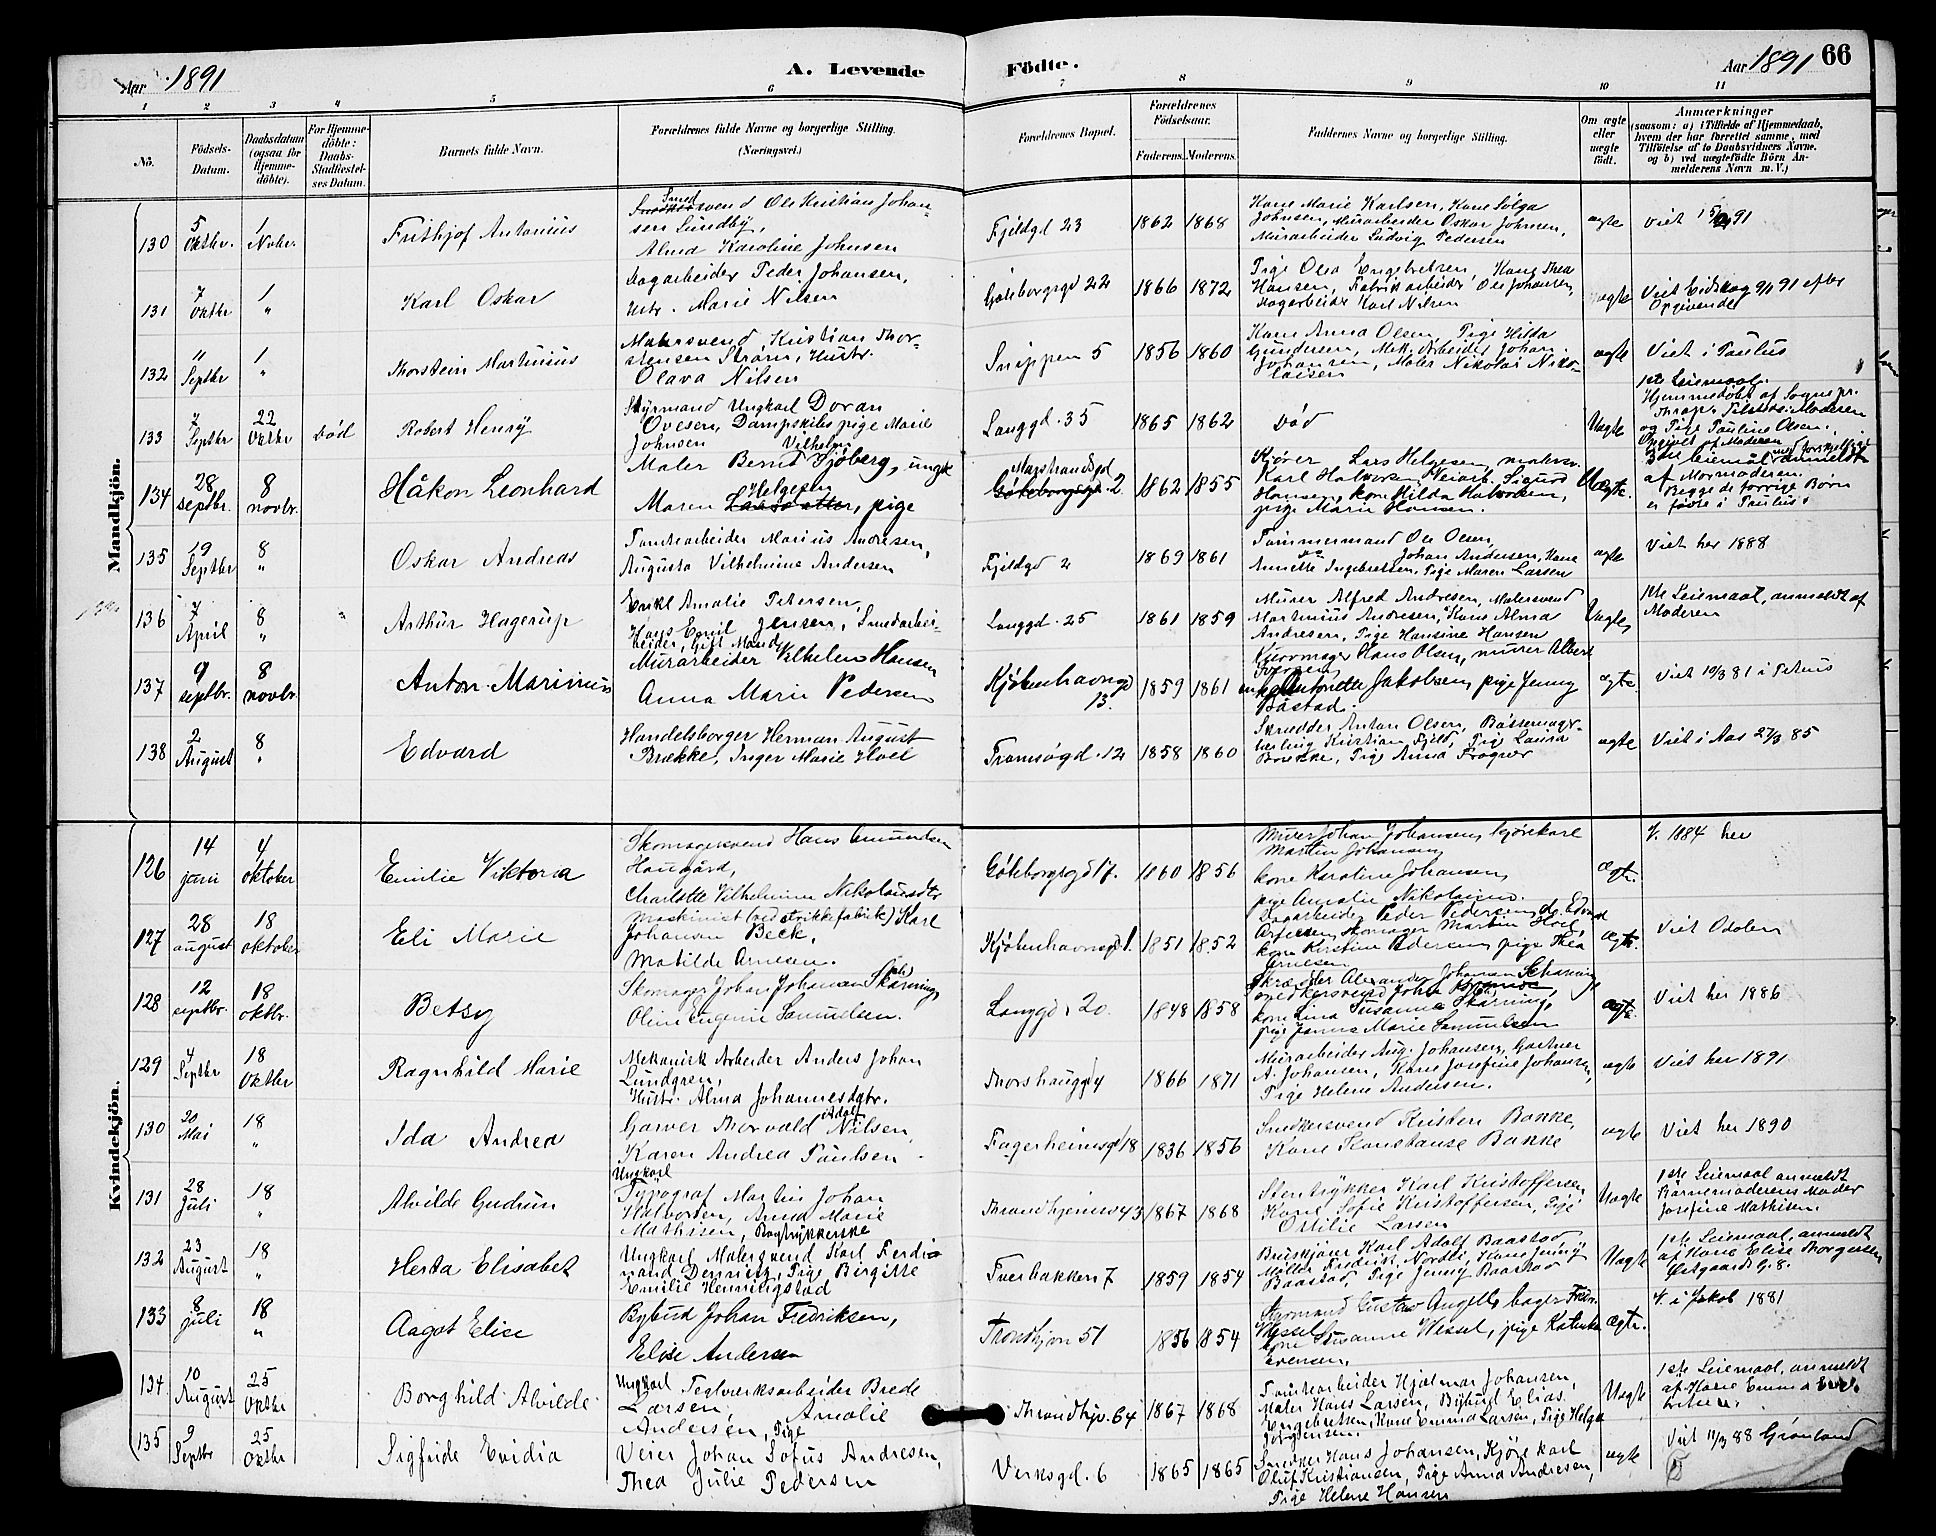 Aar 1891
A. Levende
Födte.
Aar 1891
66
1 2 3 4 5 6 7 8 9 10 11
No.
Födsels-
Datum.
Daabsdatum
(ogsaa for
Hjemme-
döbte).
For Hjemme-
döbte:
Daabs-
Stadfæstel-
ses Datum.
Barnets fulde Navn.
Forældrenes fulde Navne og borgerlige Stilling.
(Næringsvei.)
Forældrenes Bopæl.
Forældrenes
Födselsaar.
Faderens. Moderens.
Faddernes Navne og borgerlige Stilling.
Om ægte
eller
uægte
födt.
Anmærkninger
(saasom: a) i Tilfælde af Hjemmedaab,
hvem der har forrettet samme, med
Tilföielse af to Daabsvidners Navne,
og b) ved uægtefödte Börn An-
melderens Navn m. V.)
Mandkjön.
130
5
Oktbr.
1
Novbr.
Frithjof Antonius
Smed
svend Ole Kristian Johan-
sen Sundby,
Alma Karoline Johnsen
Fjeldgd 23
1862 1868
Kone Marie Karlsen, Kone Solga
Johnsen, Murarbeider Oskar Johnsen,
Murarbeider Ludvig Pedersen
ægte
Viet 91
131
7
Oktbr
1
"
Karl Oskar
Dagarbeider Peder Johansen,
Hstr. Marie Nilsen
Göteborgsgd 22
1866 1872
Pige Olea Engebretsen, Kone Thea
Hansen, Fabrikarbeider Ole Johansen,
Dagarbeider Karl Nilsen
ægte
Viet Eidskog 9/1 91 efter
Opgivende
132
11
Septbr
1
"
Thorstein Martinius
Malersvend Kristian Thor-
stensen Strøm, Hustr.
Olava Nilsen
Snippen 5
1856 1860
Kone Anna Olsen, Pige Hilda
Gundersen, Mek. Arbeider Johan
Johansen, Maler Nikolai Niko-
laisen
ægte
Viet i Paulus
133
7
Septbr
22
Oktbr
Død
Robert Henry
Styrmand Ungkarl Doran
Ovesen, Dampskibspige Marie
Johnsen
Langgd. 35
1865 1862
Død
Uægte
1ste Leiermaal.
Hjemmedøbt af Sognepr.
Thrap. Tilstede: Moderen
og Pige Pauline Olsen.
Opgivet af Moderen
134
28
septbr.
8
novbr.
Håkon Leonhard
Vilhelm
Maler Bernt Sjöberg, ungk
Helgesen
Maren , pige
Magstrandsgd
Göteborgsgd 2
1862 1855
Kjører Lars Helgesen, malersv.
Karl Halvorsen, Veiarb. Sigurd
Hansen, kone Hilda Halvorsen,
pige Marie Hansen.
Uægte.
3die leiermål, anmeldt
af Mormoderen.
Begge de forrige Børn
er fødte i Paulus
135
19
Septbr
8
"
Oskar Andreas
Tomtearbeider Marius Andresen,
Augusta Vilhelmine Andersen
Fjeldgd 2
1869 1861
Tømmermand Ole Olsen,
do Johan Andersen, Kone
Annette Ingebretsen, Pige Maren Larsen
ægte
Viet her 1888
136
7
April
8
"
Arthur Hagerup
Enkl Amalie Petersen,
Hans Emil Jensen, Smedarbei-
beider, Gift Mand
Langgd. 25
1861 1859
Murer Alfred Andresen, Malersvend
Martinius Andresen, Kone Alma
Andresen, Pige Hansine Hansen
Uægte
1ste Leiermaal, anmeldt af
Moderen
137
9
septbr.
8
novbr.
Anton Marinius
Murarbeider Vilhelm Hansen
Anna Marie Pedersen
Kjøbenhavnsgd
13.
1859 1861
Hans Olsen, murer Albert
enke Antonette Jakobsen, pige Jenny
Båstad.
ægte.
Viet 10/3 81 i Petrus
138
2
August
8
"
Edvard
Handelsborger Herman August
Brække, Inger Marie Hoel
Tromsøgd. 12
1858 1860
Skrædder Anton Olsen, Bøssemager-
lærling Kristian Fjeld, Pige Laura
Brække, Pige Anna Frogner
ægte
Viet i Aas 27/3 85
Kvindekjön.
126
14
juni
4
oktober
Emilie Viktoria
Skomagersvend Hans Amundsen
Haugård,
Charlotte Vilhelmine Nikolaisdtr
Göteborgsgd 17.
1860 1856
Murer Johan Johansen, kjørekarl
Martin Johansen,
kone Karoline Johansen,
pige Amalie Nikolaisen.
Ægt.
V. 1884 her
127
28
august
18
oktober
Eli Marie
Maskinist (ved strikkefabrik) Karl
Johansen Beck,
Matilde Arnesen.
Kjøbenhavnsgd 1.
1851 1852
Dagarbeider Peder Pedersen, do. Edvard
Arnesen, skomager Martin Hoel,
kone Kirstine Pedersen, pige Thea
Arnesen
ægt.
Viet Odalen
128
12
septbr.
18
oktbr.
Betsy
Skomager Johan Johansen Skärning,
Oline Eugenie Samuelsen.
Langgd. 20.
1848 1858
Skrædder Alexander Johansen Schärning
snedkersvend John
kone Lina Susanna Skärning,
pige Janna Marie Samuelsen
ægt.
Viet her 1886
129
4
Septbr
18
Oktbr
Ragnhild Marie
Mekanisk Arbeider Anders Johan
Lundgren,
Hustr. Alma Johannesdtr.
Thorshauggd 4
1866 1871
Murarbeider Aug. Johansen, Gartner
A. Johansen, Kone Josefine Johansen,
Pige Helene Andersen.
ægte
Viet her 1891
130
20
Mai
18
"
Ida Andrea
Adolf
Garver Thorvald Nilsen,
Karen Andrea Paulsen
Fagerheimsgd 18
1836 1856
Snedkersvend Kristen Bakke,
Kone Konstanse Bakke
ægte
Viet her 1890
131
28
Juli
18
"
Alvilde Gudrun
Ungkarl
Typograf Martin Johan
Halvorsen, Anna Marie
Mathisen, Bogtrykkerske
Throndhjemsv 43
1867 1868
Stentrykker Karl Kristoffersen,
Kone Sofie Kristoffersen, Pige
Ottilie Larsen
Uægte
1ste Leiermaal anmeldt
Barnemoderens Moder
Josefine Mathisen.
132
23
August
18
"
Herta Elisabet
Ungkarl Malersvend Karl Ferdi-
nand , Pige Birgitte
Emilie Henningstad
Tverbakken 7
1859 1854
Karl Adolf Baastad
Møller Fredrik Nordli, Kone Jenny
Baastad, Pige Jenny Baastad
Uægte
1ste Leiermaal, anmeldt
af Kone Elise Borgersen
Østgaardsg. 8.
133
8
juli
18
"
Aagot Elise
Bybud Johan Fredriksen,
Elise Andersen
Trondhjem 51
1856 1854
Styrmand Gustav Angell, bager Fredr.
Wessel,
kone Susanne Wessel, pige Katinka
Evensen.
Ægte.
V. i Jakob 1881
134
10
August
25
Oktbr
Borghild Alvilde
Ungkarl Teglværksarbeider Brede
Larsen, Amalie
Andersen, Pige
Throndhjv. 64
1867 1868
Tomtearbeider Hjalmar Johansen,
Maler Hans Larsen, Bybud Elias
Engebretsen, Kone Emma Larsen, Pige Helga
Jörgensen.
Uægte
1ste Leiermaal, anmeldt
af Marie Emma
135
9
Septbr
25
Oktbr
Sigfride Evidia
Veier Johan Sofus Andresen,
Thea Julie Pedersen
Verksgd. 6
1865 1865
Snedker Hans Johansen, Kjørekarl
Oluf Kristiansen, Pige Anna Andresen,
Pige Helene Hansen
ægte
Viet 11/3 88 Grønland